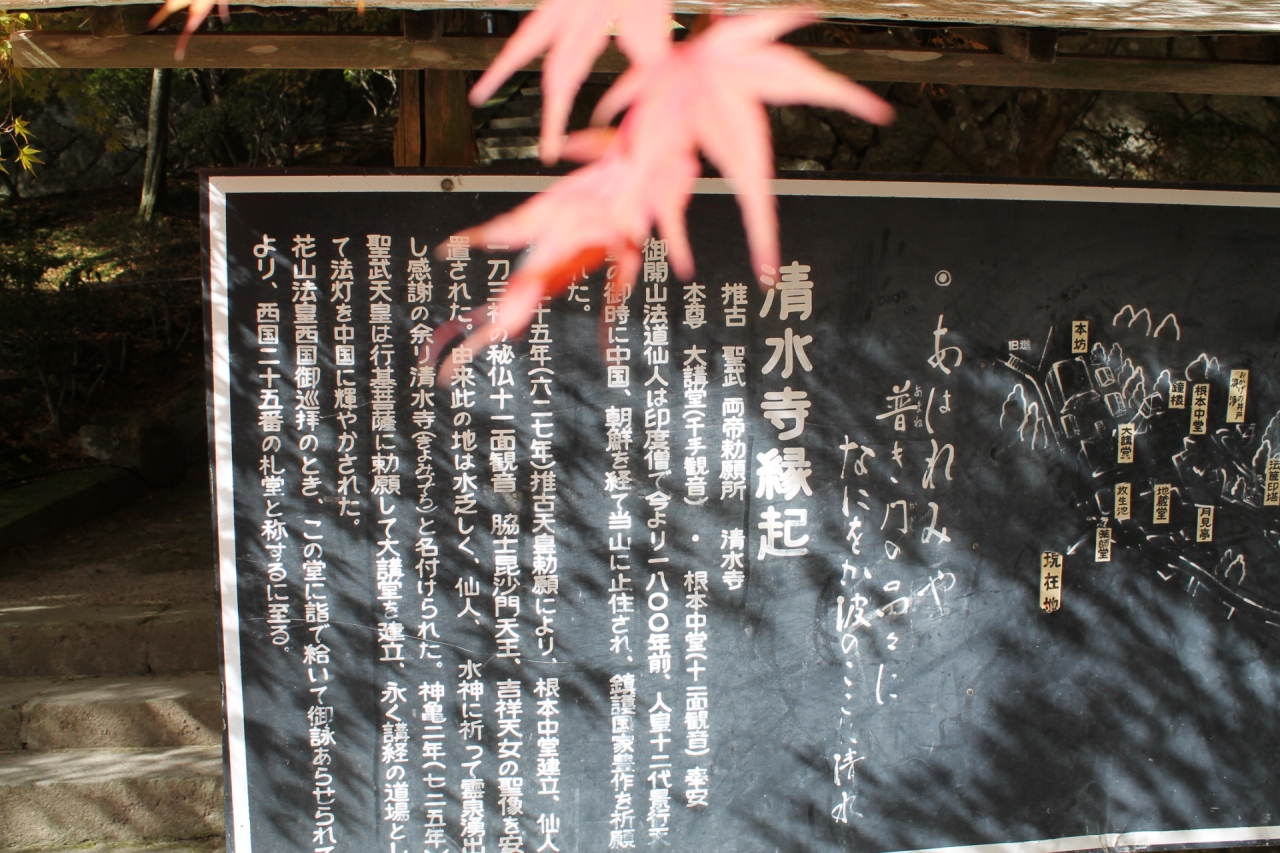 根本中堂
鐘楼
本坊
旧道
大講堂
月見亭
地蔵堂
放生池
薬師堂
現在地
◉ あはれみや
普き門の品々に
あまね
なにをか波のここに清水
清水寺縁起
推古 聖武 両帝勅願所 清水寺
本尊 大講堂(千手観音)・根本中堂(十一面観音) 奉安
御開山法道仙人は印度僧で今より一八〇〇年前、人皇十二代景行天
の御時に中国、朝鮮を経て当山に止住され、鎮護国家豊作を祈願
れた。
十五年(六二七年)推古天皇勅願により、根本中堂建立、仙人
一刀三礼の秘仏十一面観音 脇士毘沙門天王、吉祥天女の聖像を安
置された。由来此の地は水乏しく、仙人、水神に祈って霊泉湧出
し感謝の余り清水寺(きよみづでら)と名付けられた。神亀二年(七二五年)
聖武天皇は行基菩薩に勅願して大講堂を建立、永く講経の道場とし
て法灯を中国に輝やかされた。
花山法皇西国御巡拝のとき、この堂に詣で給いて御詠あらせられて
より、西国二十五番の札堂と称するに至る。